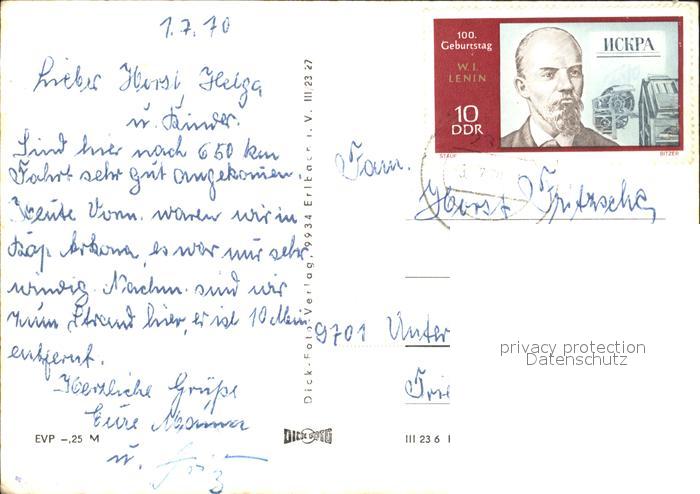 1.7.70
Lieber Horst, Helga
u. Kinder.
Sind hier nach 650 km
Fahrt sehr gut angekommen.
Heute Vorm. waren wir in
Kap Arkona, es war nur sehr
windig. Nachm. sind wir
zum Strand hier, er ist 10 Min
entfernt.
Herzliche Grüße
Eure
u. Fritz
EVP –,25 M
Dick-Foto-Verlag, 9934 Erlbach i. V. III 23 27
100.
Geburtstag
W. I.
LENIN
10
DDR
ИСКРА
STAUF
BITZER
Fam.
Horst Fritzsche
9701 Unter
privacy protection
Datenschutz
III 23 6